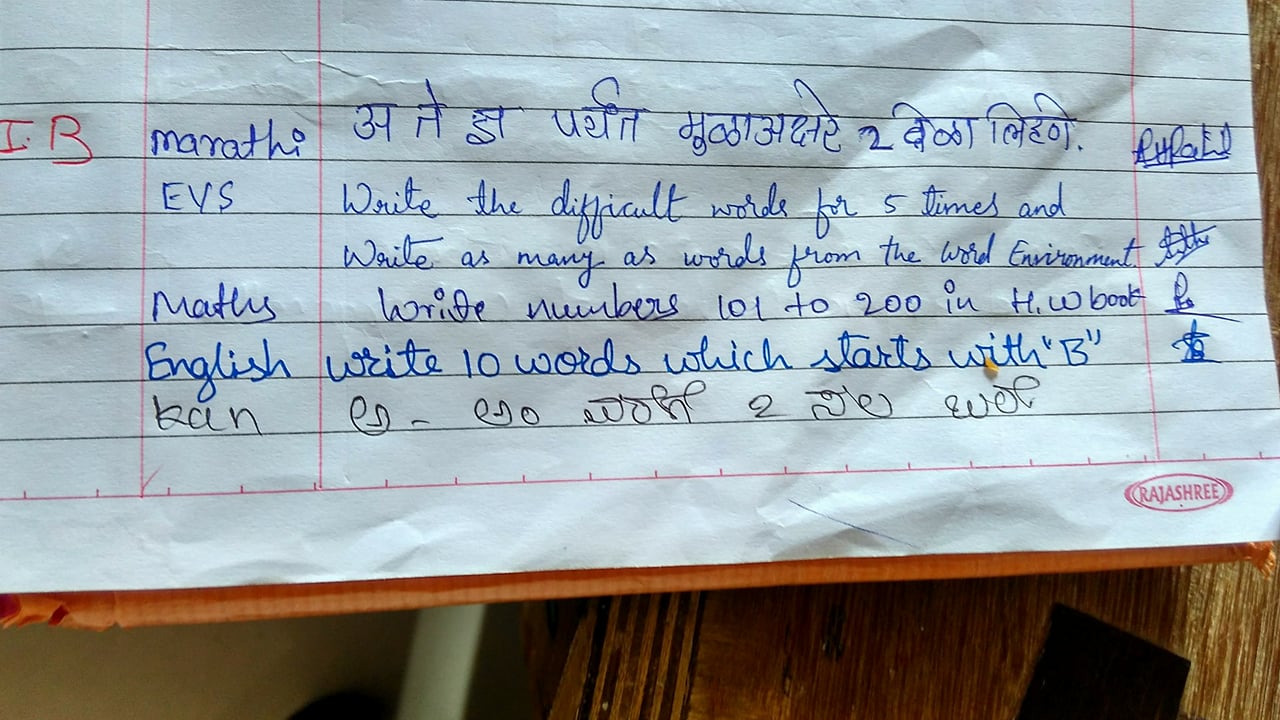 I.B marathi अ ते ज्ञ पर्यंत मुळाअक्षरे 2 वेळा लिहणे.
EVS Write the difficult words for 5 times and
Write as many as words from the word Environment
Maths Write numbers 101 to 200 in H.W book
English write 10 words which starts with "B"
kan ಅ - ಅಂ ವರೆಗೆ 2 ಸಲ ಬರೆ
RAJASHREE